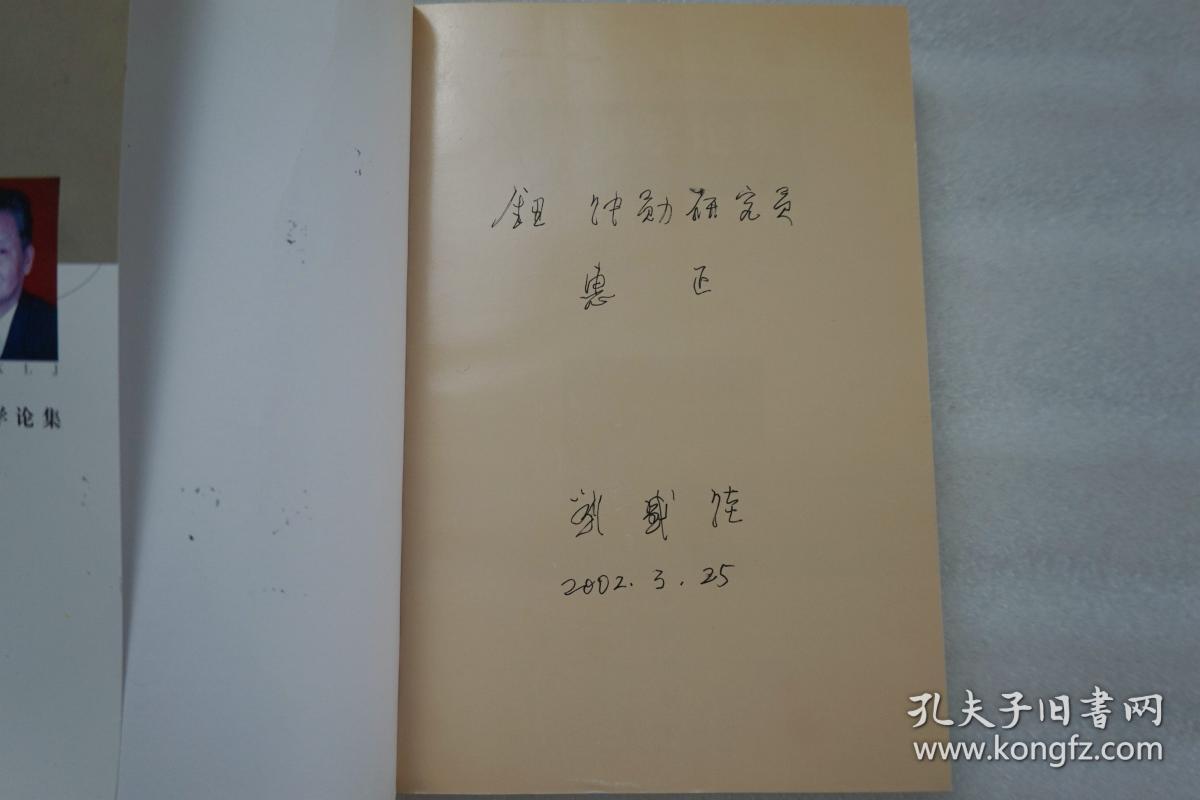 鈕 仲勋研究员
惠 正
劉 盛 佳
2002.3.25
L J
学论集
孔夫子旧書网
www.kongfz.com